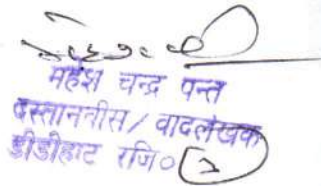 महेश चन्द्र पन्त
दस्तानवीस / वादलेखक
डीडीहाट रजि०